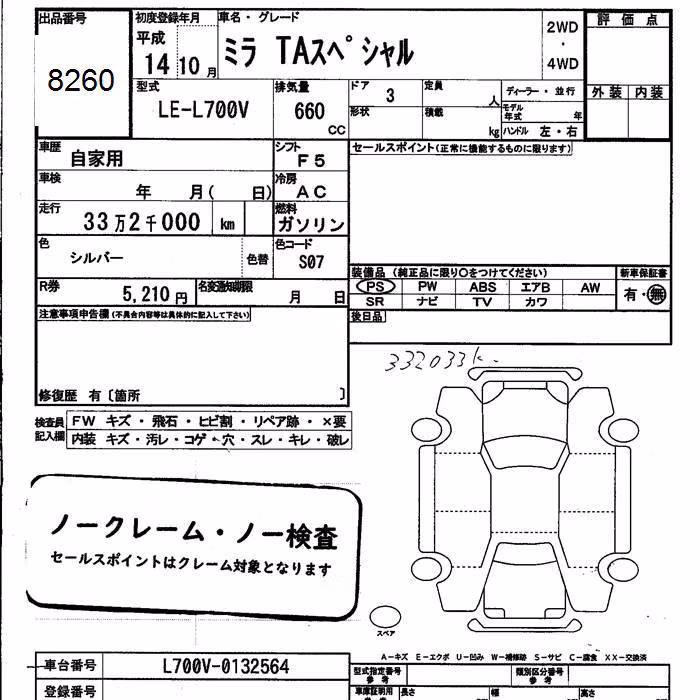 出品番号 初度登録年月 車名・グレード 評価点
8260 平成 14 10 月 ミラ TAスペシャル 2WD ・ 4WD
型式 排気量 ドア 定員 ディーラー・並行 外装 内装
LE-L700V 660 CC 3 人 モデル年式 年
形状 積載 kg ハンドル 左・右
車歴 自家用 シフト F5 セールスポイント(正常に機能するものに限ります)
車検 年 月( 日) 冷房 AC
走行 33万2千000 km 燃料 ガソリン
色 シルバー 色替 色コード S07
装備品 (純正品に限り〇をつけてください) 新車保証書
R券 5,210円 名変通知期限 月 日 PS PW ABS エアB AW 有・無
SR ナビ TV カワ
注意事項申告欄(不具合内容等は具体的に記入して下さい) 後日品
332033k.
修復歴 有〔箇所 〕
検査員記入欄 FW キズ・飛石・ヒビ割・リペア跡・×要
内装 キズ・汚レ・コゲ・穴・スレ・キレ・破レ
ノークレーム・ノー検査
セールスポイントはクレーム対象となります
スペア
A-キズ E-エクボ U-凹み W-補修跡 S-サビ C-腐食 XX-交換済
車台番号 L700V-0132564 型式指定番号 参考 類別区分番号 参考
登録番号 車庫証明用 参考 長さ 幅 高さ